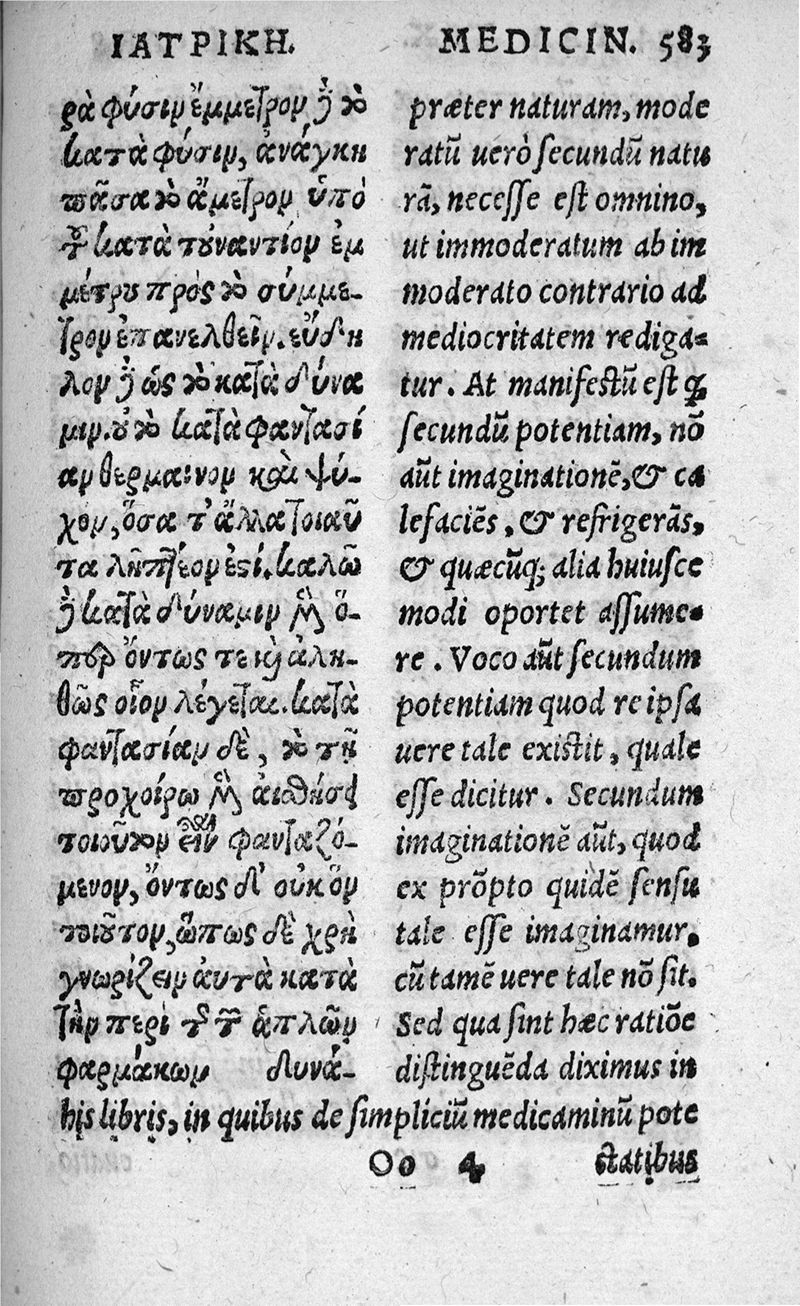 ΙΑΤΡΙΚΗ. MEDICIN. 583
ρὰ φύσιν ἔμμετρον δὲ τὸ
κατὰ φύσιν, ἀνάγκη
πᾶσα τὸ ἄμετρον ὑπὸ
τοῦ κατὰ τοὐναντίον ἐμ
μέτρου πρὸς τὸ σύμμε-
τρον ἐπανελθεῖν. εὔδη
λον δὲ ὡς τὸ κατὰ δύνα
μιν. οὐ τὸ κατὰ φαντασί
αν θερμαῖνον καὶ ψύ-
χον, ὅσα τ' ἄλλα τοιαῦ
τα ληπτέον ἐστί. καλῶ
δὲ κατὰ δύναμιν μὲν ὅ-
περ ὄντως τε καὶ ἀλη-
θῶς οἷον λέγεται. κατὰ
φαντασίαν δὲ, τὸ τῇ
προχοίρω μὲν αἰσθήσει
τοιοῦτον εἶναι φανταζό-
μενον, ὄντως δ' οὐκ ὂν
τοιοῦτον, ὅπως δὲ χρὴ
γνωρίζειν αὐτὰ κατὰ
τὴν περὶ τῶν ἁπλῶν
φαρμάκων δυνά-
præter naturam, mode
ratũ uerò secundũ natu
rã, necesse est omnino,
ut immoderatum ab im
moderato contrario ad
mediocritatem rediga-
tur. At manifestũ est ꝙ
secundũ potentiam, nõ
aũt imaginationẽ, & ca
lefaciẽs, & refrigerãs,
& quæcũq; alia huiusce
modi oportet assume-
re. Voco aũt secundum
potentiam quod re ipsa
uere tale existit, quale
esse dicitur. Secundum
imaginationẽ aũt, quod
ex prõpto quidẽ sensu
tale esse imaginamur,
cũ tamẽ uere tale nõ sit.
Sed qua sint hæc ratiõe
distinguẽda diximus in
his libris, in quibus de simpliciũ medicaminũ pote
Oo 4 statibus